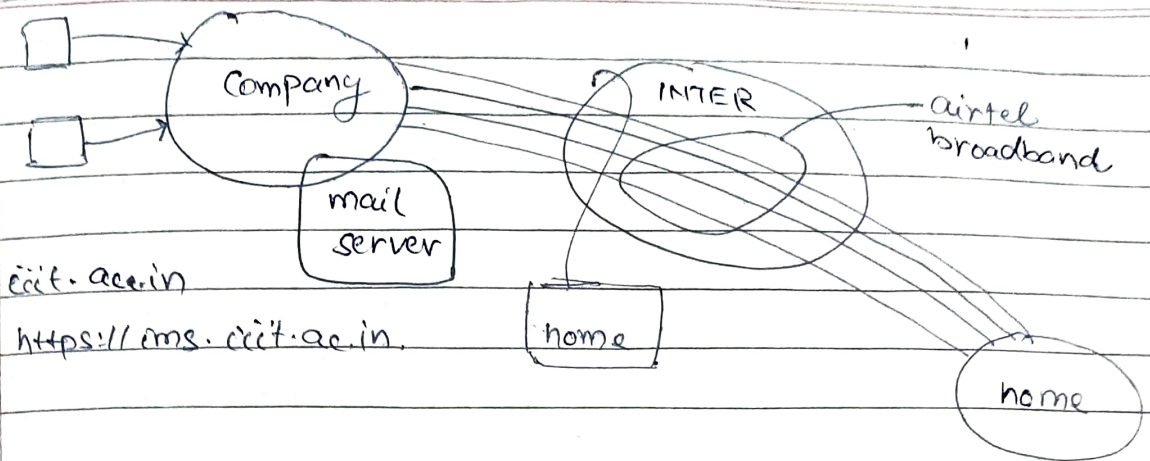 Company
INTER
airtel
broadband
mail
server
iiit.ac.in
https://ims.iiit.ac.in.
home
home